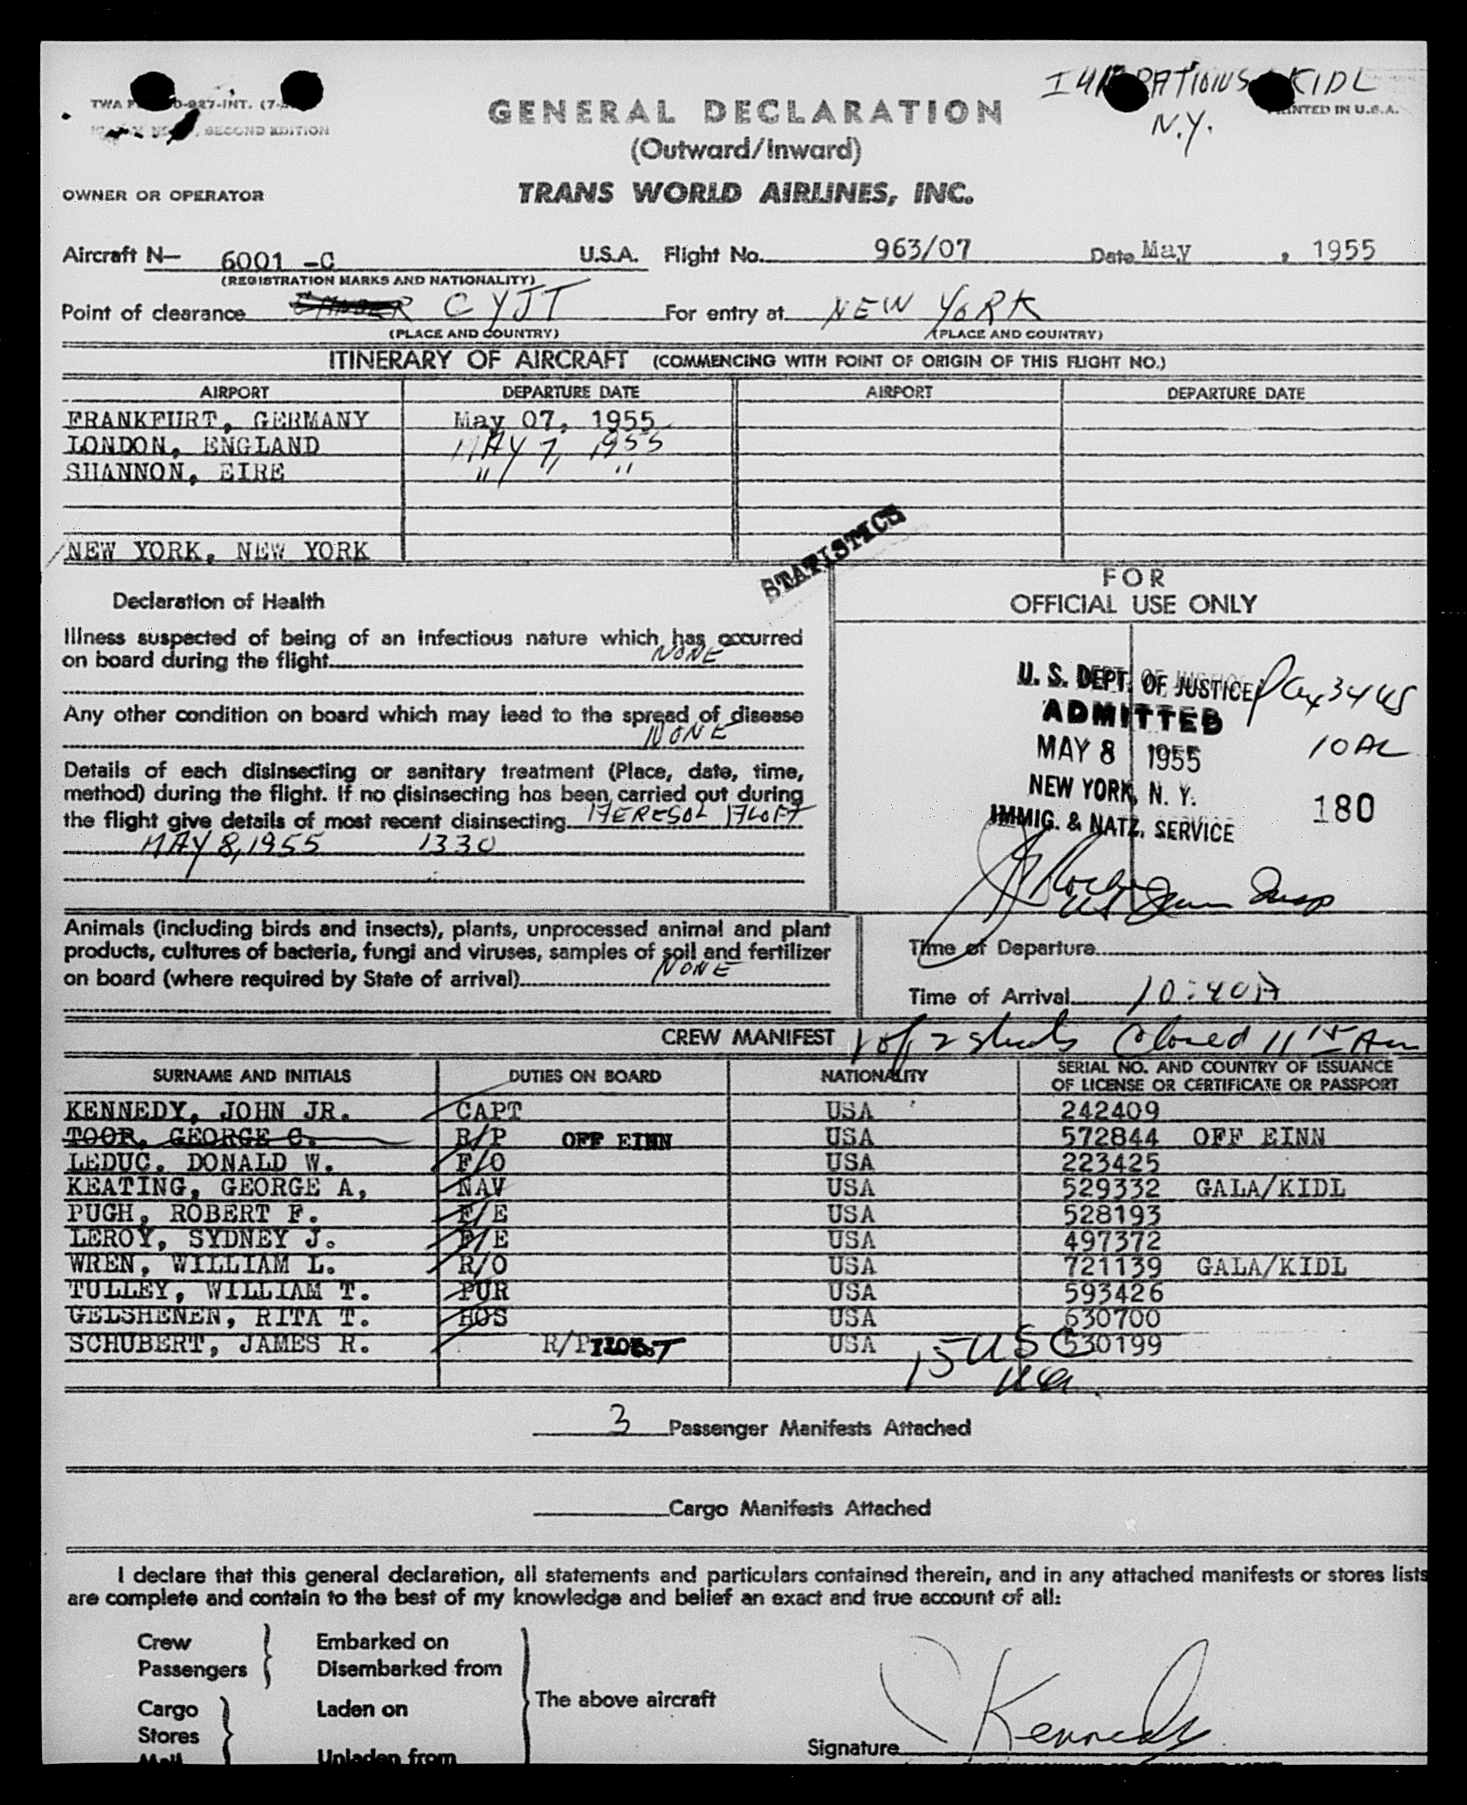 GENERAL DECLARATION
(Outward/Inward)
PRINTED IN U.S.A.
KIDL
N.Y.
SECOND EDITION
OWNER OR OPERATOR
TRANS WORLD AIRLINES, INC.
Aircraft N— 6001 -C U.S.A. Flight No. 963/07 Date May , 1955
(REGISTRATION MARKS AND NATIONALITY)
Point of clearance CYJT For entry at NEW YORK
(PLACE AND COUNTRY) (PLACE AND COUNTRY)
ITINERARY OF AIRCRAFT (COMMENCING WITH POINT OF ORIGIN OF THIS FLIGHT NO.)
AIRPORT DEPARTURE DATE AIRPORT DEPARTURE DATE
FRANKFURT, GERMANY May 07, 1955
LONDON, ENGLAND MAY 7, 1955
SHANNON, EIRE " "
NEW YORK, NEW YORK
STATISTICS
Declaration of Health
Illness suspected of being of an infectious nature which has occurred
on board during the flight NONE
Any other condition on board which may lead to the spread of disease
NONE
Details of each disinsecting or sanitary treatment (Place, date, time,
method) during the flight. If no disinsecting has been carried out during
the flight give details of most recent disinsecting
MAY 8, 1955 1330
FOR
OFFICIAL USE ONLY
U. S. DEPT. OF JUSTICE
ADMITTED
MAY 8 1955
NEW YORK, N. Y.
IMMIG. & NATZ. SERVICE
180
Animals (including birds and insects), plants, unprocessed animal and plant
products, cultures of bacteria, fungi and viruses, samples of soil and fertilizer
on board (where required by State of arrival) NONE
Time of Departure
Time of Arrival 10:40A
CREW MANIFEST 1 of 2 sheets Closed 11 15 Am
SURNAME AND INITIALS DUTIES ON BOARD NATIONALITY SERIAL NO. AND COUNTRY OF ISSUANCE
OF LICENSE OR CERTIFICATE OR PASSPORT
KENNEDY, JOHN JR. CAPT USA 242409
TOOR, GEORGE C. R/P OFF EINN USA 572844 OFF EINN
LEDUC. DONALD W. F/O USA 223425
KEATING, GEORGE A, NAV USA 529332 GALA/KIDL
PUGH, ROBERT F. F/E USA 528193
LEROY, SYDNEY J. F/E USA 497372
WREN, WILLIAM L. R/O USA 721139 GALA/KIDL
TULLEY, WILLIAM T. PUR USA 593426
GELSHENEN, RITA T. HOS USA 630700
SCHUBERT, JAMES R. R/P USA 530199
15 USC
3 Passenger Manifests Attached
Cargo Manifests Attached
I declare that this general declaration, all statements and particulars contained therein, and in any attached manifests or stores lists
are complete and contain to the best of my knowledge and belief an exact and true account of all:
Crew Embarked on
Passengers Disembarked from
The above aircraft
Cargo Laden on
Stores
Mail Unladen from
Signature Kennedy